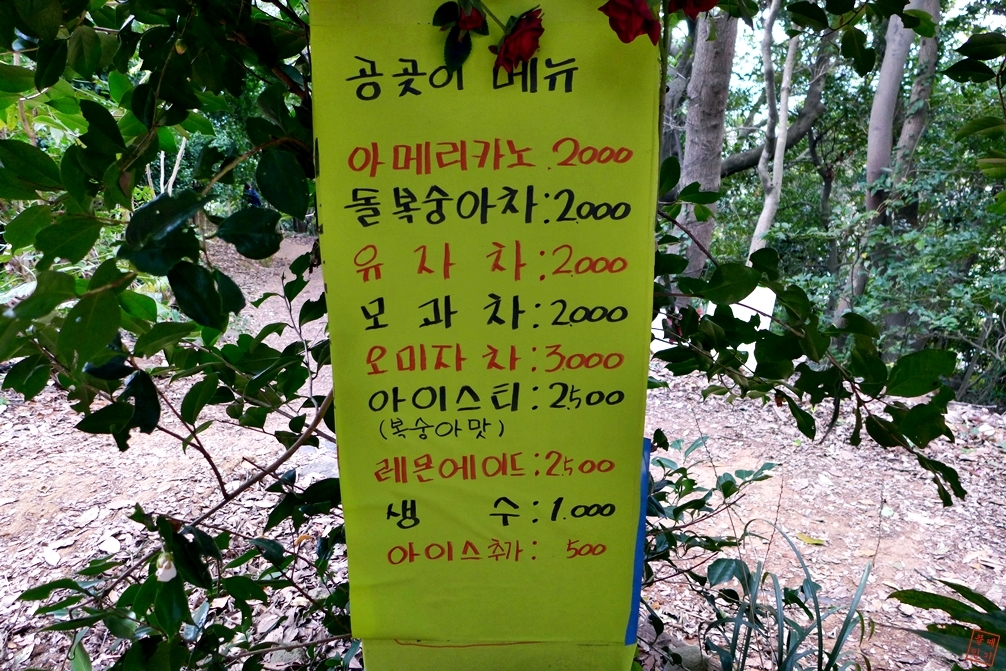 공곶이 메뉴
아메리카노.2000
돌복숭아차:2.000
유자차:2.000
모과차:2.000
오미자차:3.000
아이스티:2.500
(복숭아맛)
레몬에이드:2500
생수:1.000
아이스추가: 500